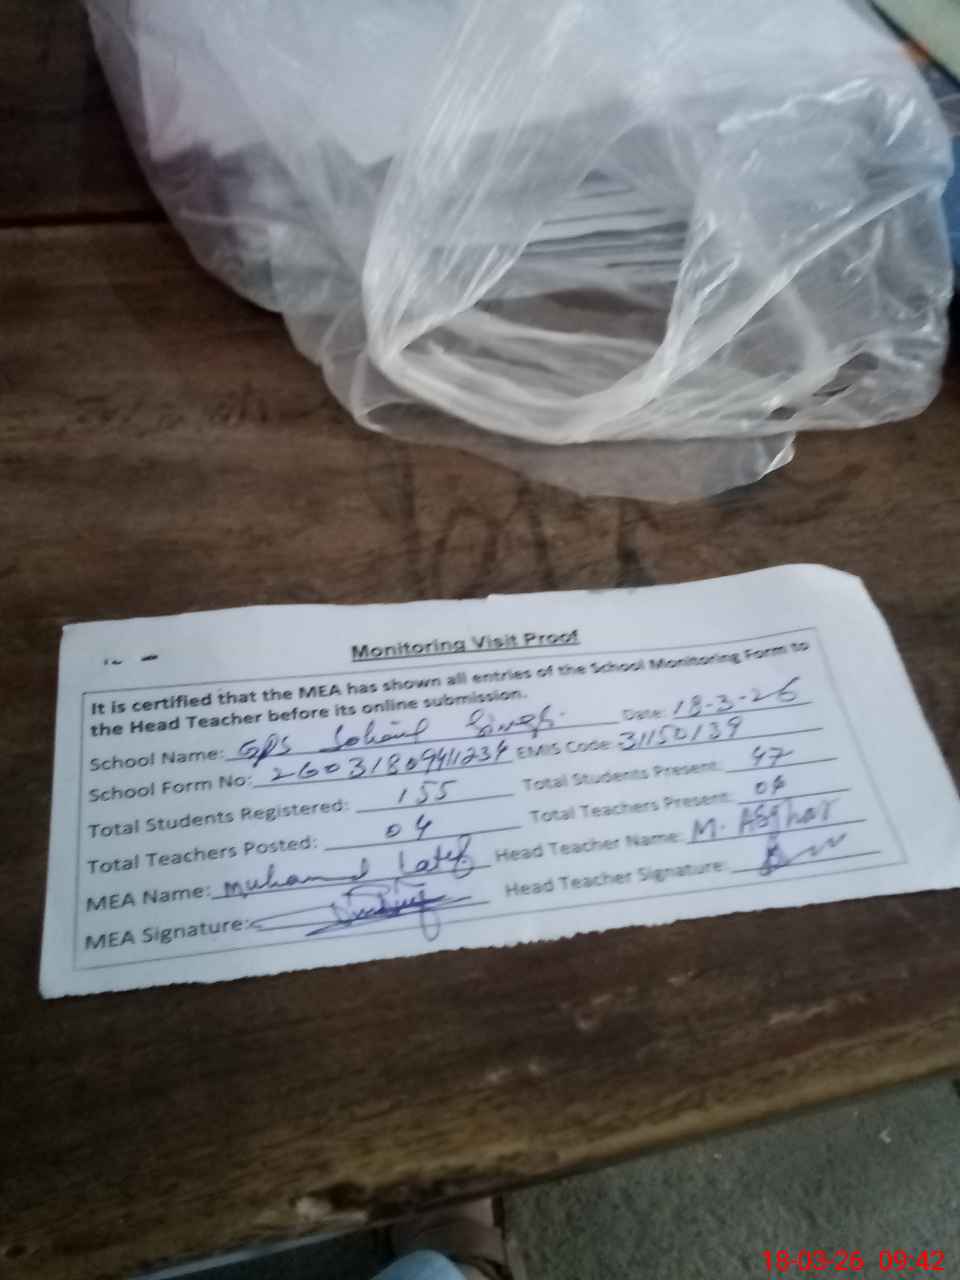 Monitoring Visit Proof
It is certified that the MEA has shown all entries of the School Monitoring Form to
the Head Teacher before its online submission.
School Name: GPS Sohail Singh Date: 18-3-26
School Form No: 26031809411234 EMIS Code: 31150139
Total Students Registered: 155 Total Students Present: 47
Total Teachers Posted: 04 Total Teachers Present: 04
MEA Name: Muhammad Latif Head Teacher Name: M. Asghar
MEA Signature: Head Teacher Signature:
18-03-26 09:42